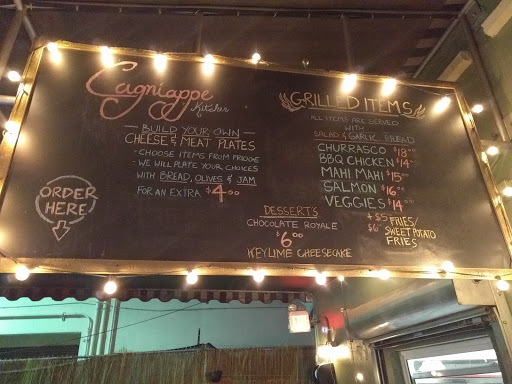 Cagniappe
Kitchen
BUILD YOUR OWN
CHEESE & MEAT PLATES
- CHOOSE ITEMS FROM FRIDGE
- WE WILL PLATE YOUR CHOICES
WITH BREAD, OLIVES & JAM
FOR AN EXTRA $4.00
ORDER
HERE
DESSERTS
CHOCOLATE ROYALE
$6.00
KEYLIME CHEESECAKE
GRILLED ITEMS
ALL ITEMS ARE SERVED
WITH
SALAD & GARLIC BREAD
CHURRASCO $18.00
BBQ CHICKEN $14.00
MAHI MAHI $15.00
SALMON $16.00
VEGGIES $14.00
+ $5 FRIES/
$6 SWEET POTATO
FRIES